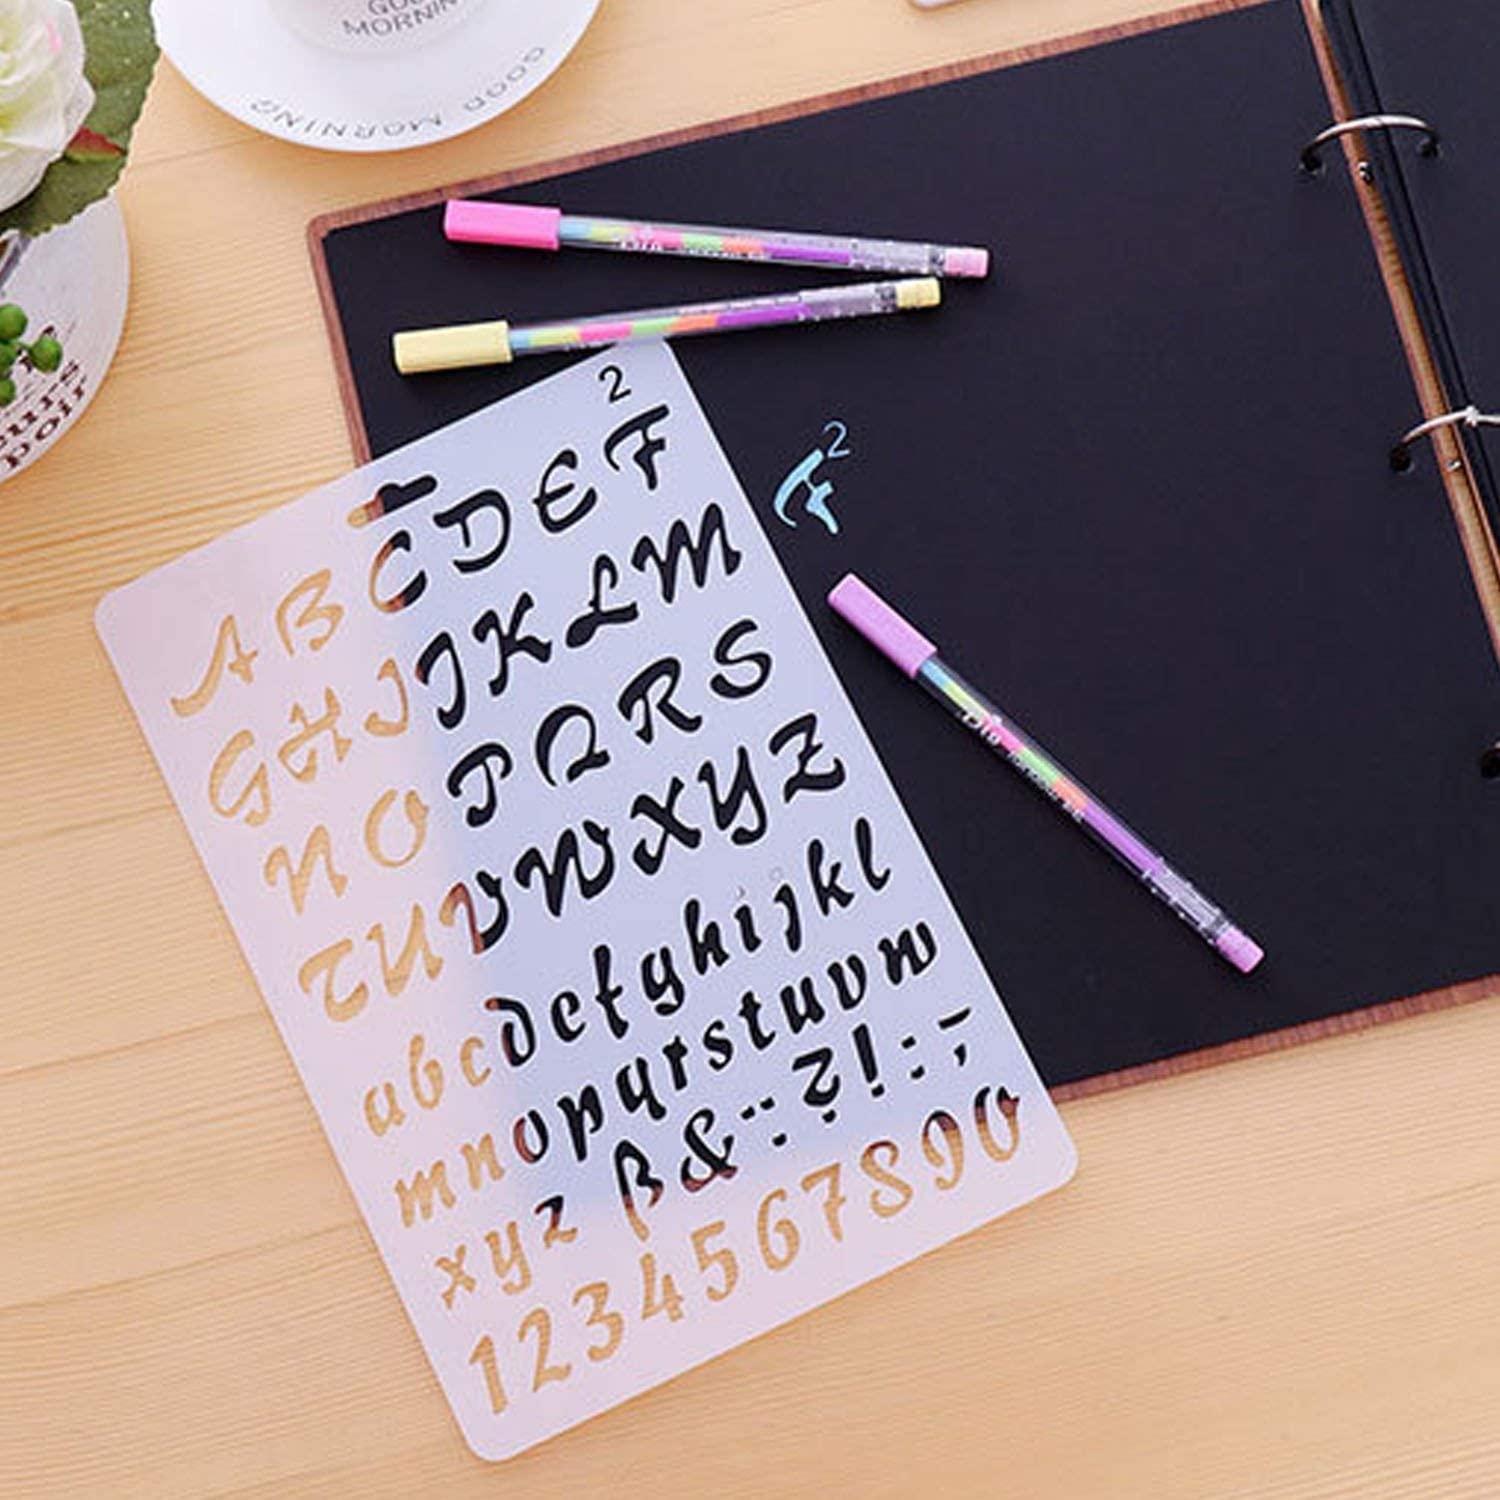 GOOD
MORNING
GOOD MORNING
2
A B C D E F
G H I J K L M
N O P Q R S
T U V W X Y Z
a b c d e f g h i j k l
m n o p q r s t u v w
x y z ß & : : ? ! : ,
1 2 3 4 5 6 7 8 9 0
F2
poir